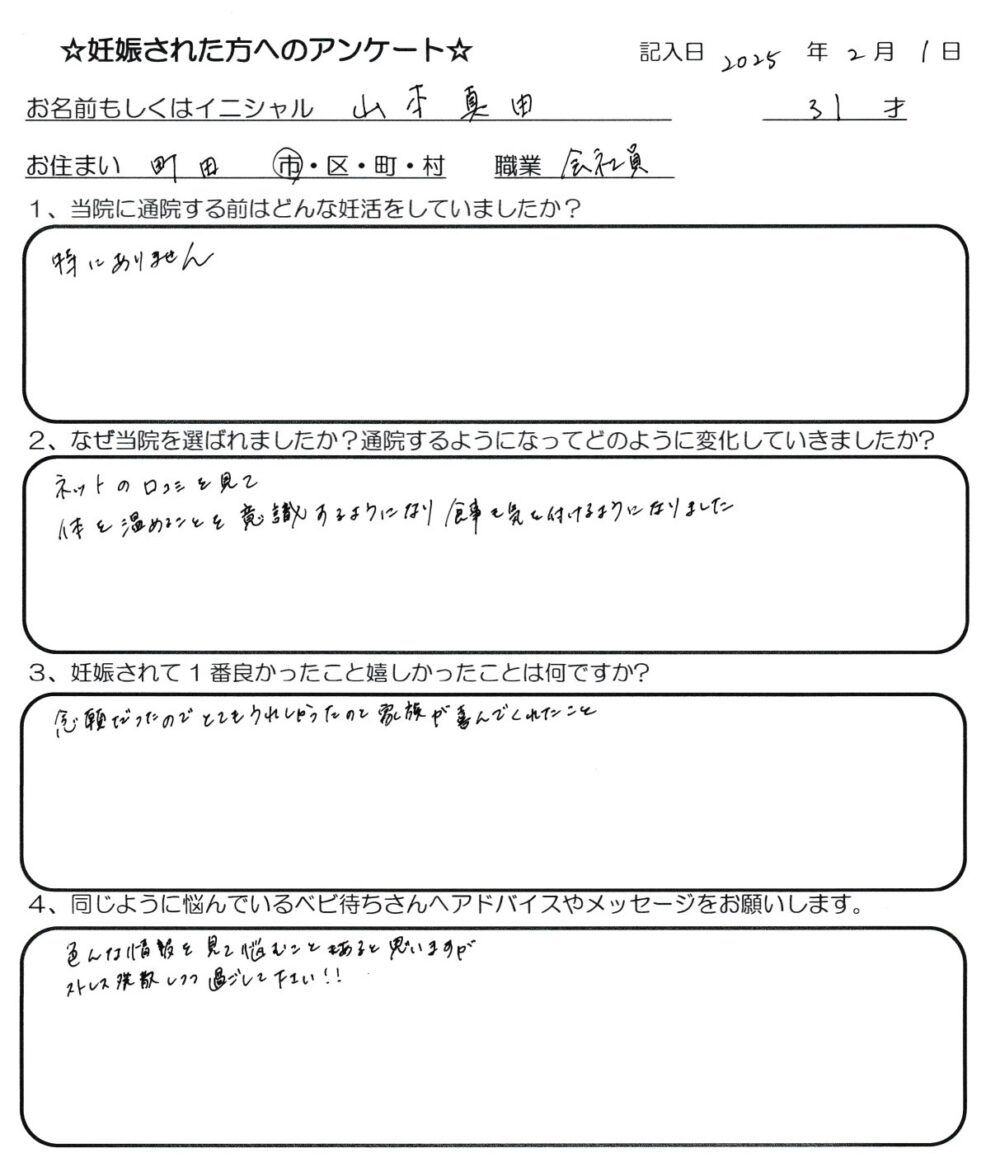 ☆妊娠された方へのアンケート☆ 記入日 2025 年 2 月 1 日
お名前もしくはイニシャル 山本真由 31 才
お住まい 町田 市・区・町・村 職業 会社員
1、当院に通院する前はどんな妊活をしていましたか？
特にありません
2、なぜ当院を選ばれましたか？通院するようになってどのように変化していきましたか?
ネットの口コミを見て
体を温めることを意識するようになり食事も気を付けるようになりました
3、妊娠されて1番良かったこと嬉しかったことは何ですか?
念願だったのでとてもうれしかったのと家族が喜んでくれたこと
4、同じように悩んでいるベビ待ちさんへアドバイスやメッセージをお願いします。
色んな情報を見て悩むこともあると思いますが
ストレス発散しつつ過ごして下さい!!